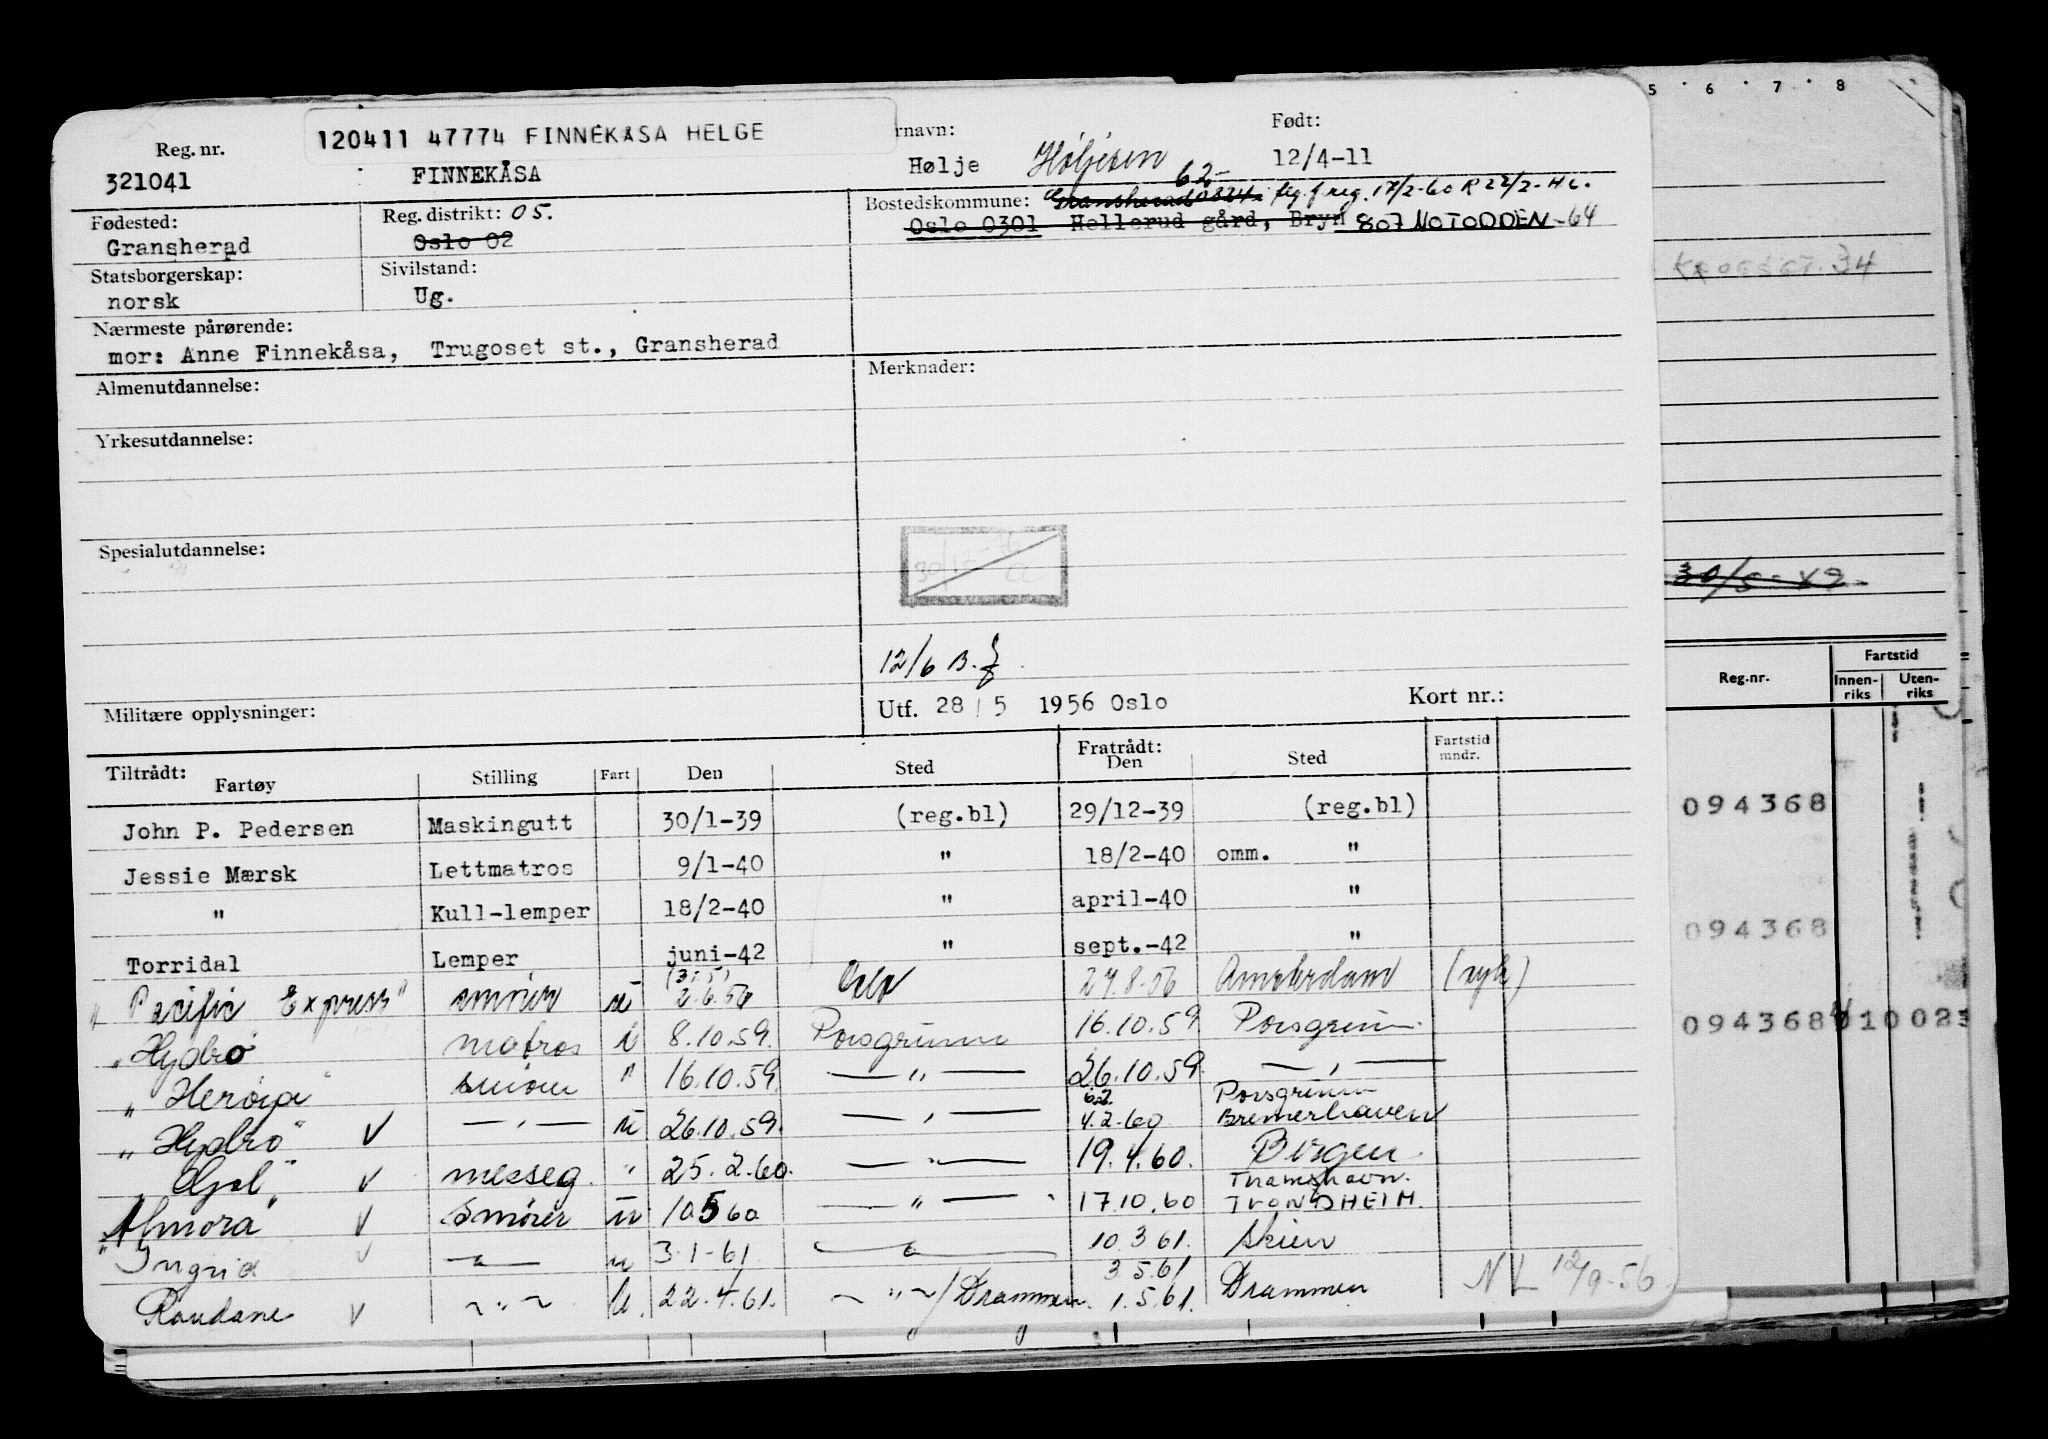 120411 47774 FINNEKÅSA HELGE
Reg. nr.
321041
FINNEKÅSA
rnavn:
Hølje Høljesen
Født:
12/4-11
Fødested:
Gransherad
Reg. distrikt: 05.
Oslo 02
Bostedskommune: Gransherad 0824 62- flg. f. reg. 17/2-60 R 22/2-
Oslo 0301 Hellerud gård, Bryn 807 NOTODDEN -64
Statsborgerskap:
norsk
Sivilstand:
Ug.
Nærmeste pårørende:
mor: Anne Finnekåsa, Trugoset st., Gransherad
Almenutdannelse:
Merknader:
Yrkesutdannelse:
Spesialutdannelse:
30/12-76
12/6 B.
Militære opplysninger:
Utf. 28/5 1956 Oslo
Kort nr.:
Tiltrådt:
Fartøy Stilling Fart Den Sted
Fratrådt:
Den Sted
Fartstid
mndr.
John P. Pedersen Maskingutt 30/1-39 (reg.bl) 29/12-39 (reg.bl)
Jessie Mærsk Lettmatros 9/1-40 " 18/2-40 omm. "
" Kull-lemper 18/2-40 " april-40 "
Torridal Lemper juni-42 " sept.-42 "
"Pacific Express" smører u (31.5) 2.6.56 Oslo 27.8.56 Amsterdam (syk)
"Hydro" matros i 8.10.59. Porsgrunn 16.10.59 Porsgrunn
"Herøya" " 16.10.59. — " — 26.10.59. — " —
"Hydro" V — " — u 26.10.59. — " — 4.2.60 Porsgrunn
Bremerhaven
V messeg. " 25.2.60. — " — 19.4.60. Bergen
"Almora" V Smører u 10 5 60 — " — 17.10.60 Thamshavn.
TRONDHEIM.
Ingrid V — " — u 3-1-61. — " — 10.3.61. Skien
Rondane V ~ " ~ u. 22.4.61. ~ " ~ / Drammen. 3.5.61
1.5.61. Drammen
NL 12/9-56
5 6 7 8
30/5-
Reg.nr.
Fartstid
Innen-
riks
Uten-
riks
094368
094368
094368